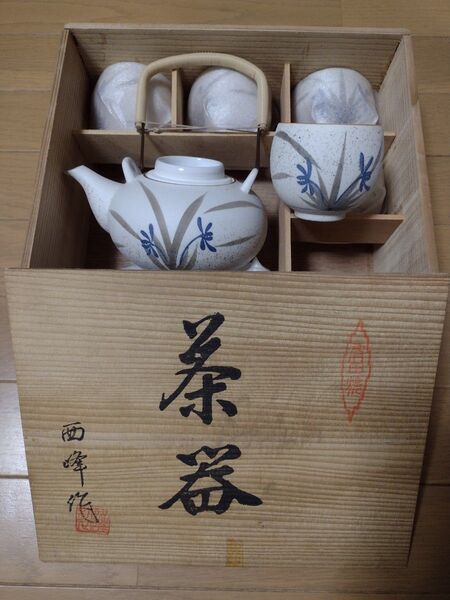 茶器
西峰作